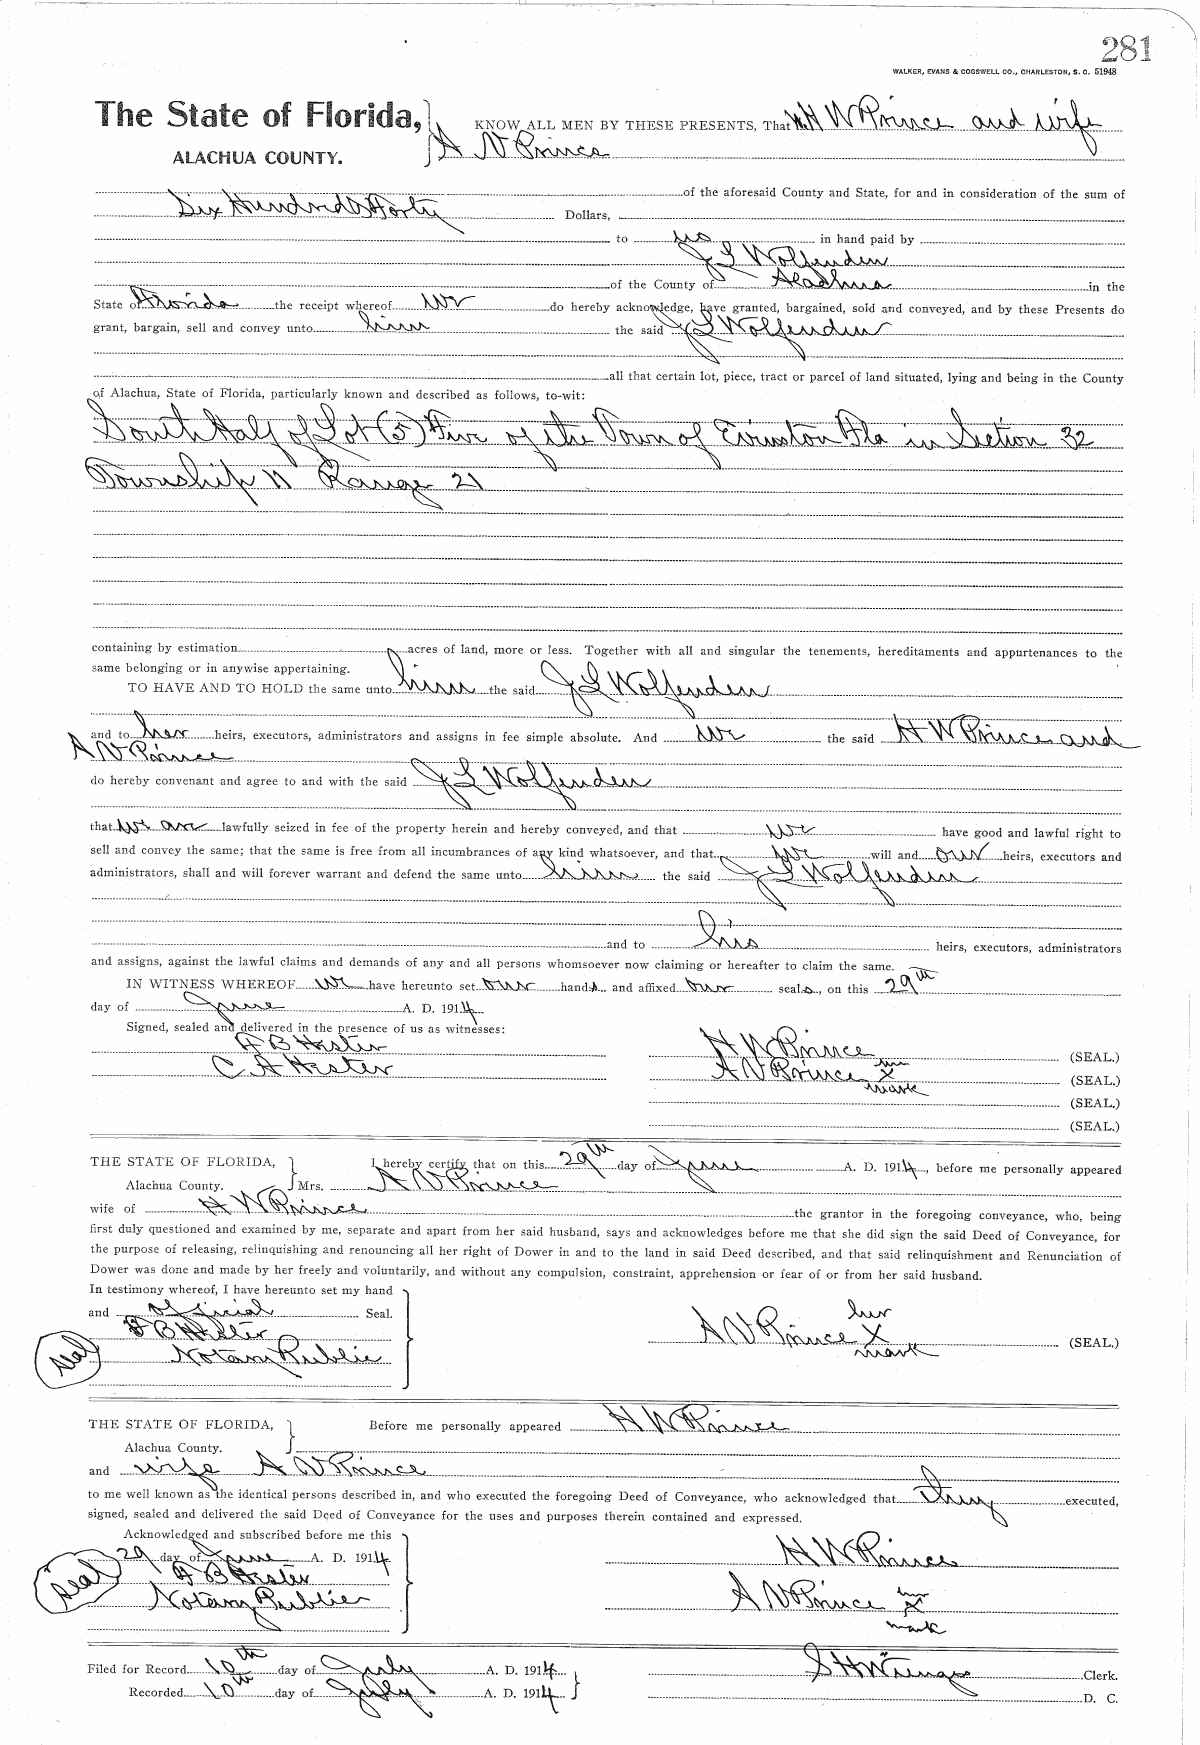 281
WALKER, EVANS & COGSWELL CO., CHARLESTON, S. C. 51948
The State of Florida, KNOW ALL MEN BY THESE PRESENTS, That H W Prince and wife
ALACHUA COUNTY. A N Prince
of the aforesaid County and State, for and in consideration of the sum of
Six Hundred & Forty Dollars,
to us in hand paid by
J L Wolfenden
of the County of Alachua in the
State of Florida the receipt whereof we do hereby acknowledge, have granted, bargained, sold and conveyed, and by these Presents do
grant, bargain, sell and convey unto him the said J L Wolfenden
all that certain lot, piece, tract or parcel of land situated, lying and being in the County
of Alachua, State of Florida, particularly known and described as follows, to-wit:
South Half of Lot (5) Five of the Town of Evinston Fla in Section 32
Township 11 Range 21
containing by estimation acres of land, more or less. Together with all and singular the tenements, hereditaments and appurtenances to the
same belonging or in anywise appertaining.
TO HAVE AND TO HOLD the same unto him the said J L Wolfenden
and to her heirs, executors, administrators and assigns in fee simple absolute. And we the said H W Prince and
A N Prince
do hereby convenant and agree to and with the said J L Wolfenden
that we are lawfully seized in fee of the property herein and hereby conveyed, and that we have good and lawful right to
sell and convey the same; that the same is free from all incumbrances of any kind whatsoever, and that we will and our heirs, executors and
administrators, shall and will forever warrant and defend the same unto him the said J L Wolfenden
and to his heirs, executors, administrators
and assigns, against the lawful claims and demands of any and all persons whomsoever now claiming or hereafter to claim the same.
IN WITNESS WHEREOF we have hereunto set our hands and affixed our seals, on this 29th
day of June A. D. 1914
Signed, sealed and delivered in the presence of us as witnesses:
F B Hester H W Prince (SEAL.)
C A Hester A N Prince her X mark (SEAL.)
(SEAL.)
(SEAL.)
THE STATE OF FLORIDA, I hereby certify that on this 29th day of June A. D. 1914, before me personally appeared
Alachua County. Mrs. A N Prince
wife of H W Prince the grantor in the foregoing conveyance, who, being
first duly questioned and examined by me, separate and apart from her said husband, says and acknowledges before me that she did sign the said Deed of Conveyance, for
the purpose of releasing, relinquishing and renouncing all her right of Dower in and to the land in said Deed described, and that said relinquishment and Renunciation of
Dower was done and made by her freely and voluntarily, and without any compulsion, constraint, apprehension or fear of or from her said husband.
In testimony whereof, I have hereunto set my hand
and official Seal.
F B Hester A N Prince her X mark (SEAL.)
seal Notary Public
THE STATE OF FLORIDA, Before me personally appeared H W Prince
Alachua County.
and wife A N Prince
to me well known as the identical persons described in, and who executed the foregoing Deed of Conveyance, who acknowledged that they executed,
signed, sealed and delivered the said Deed of Conveyance for the uses and purposes therein contained and expressed.
Acknowledged and subscribed before me this
29 day of June A. D. 1914 H W Prince
F B Hester
seal Notary Public A N Prince her X mark
Filed for Record 10th day of July A. D. 1914 Clerk.
Recorded 10th day of July A. D. 1914 D. C.